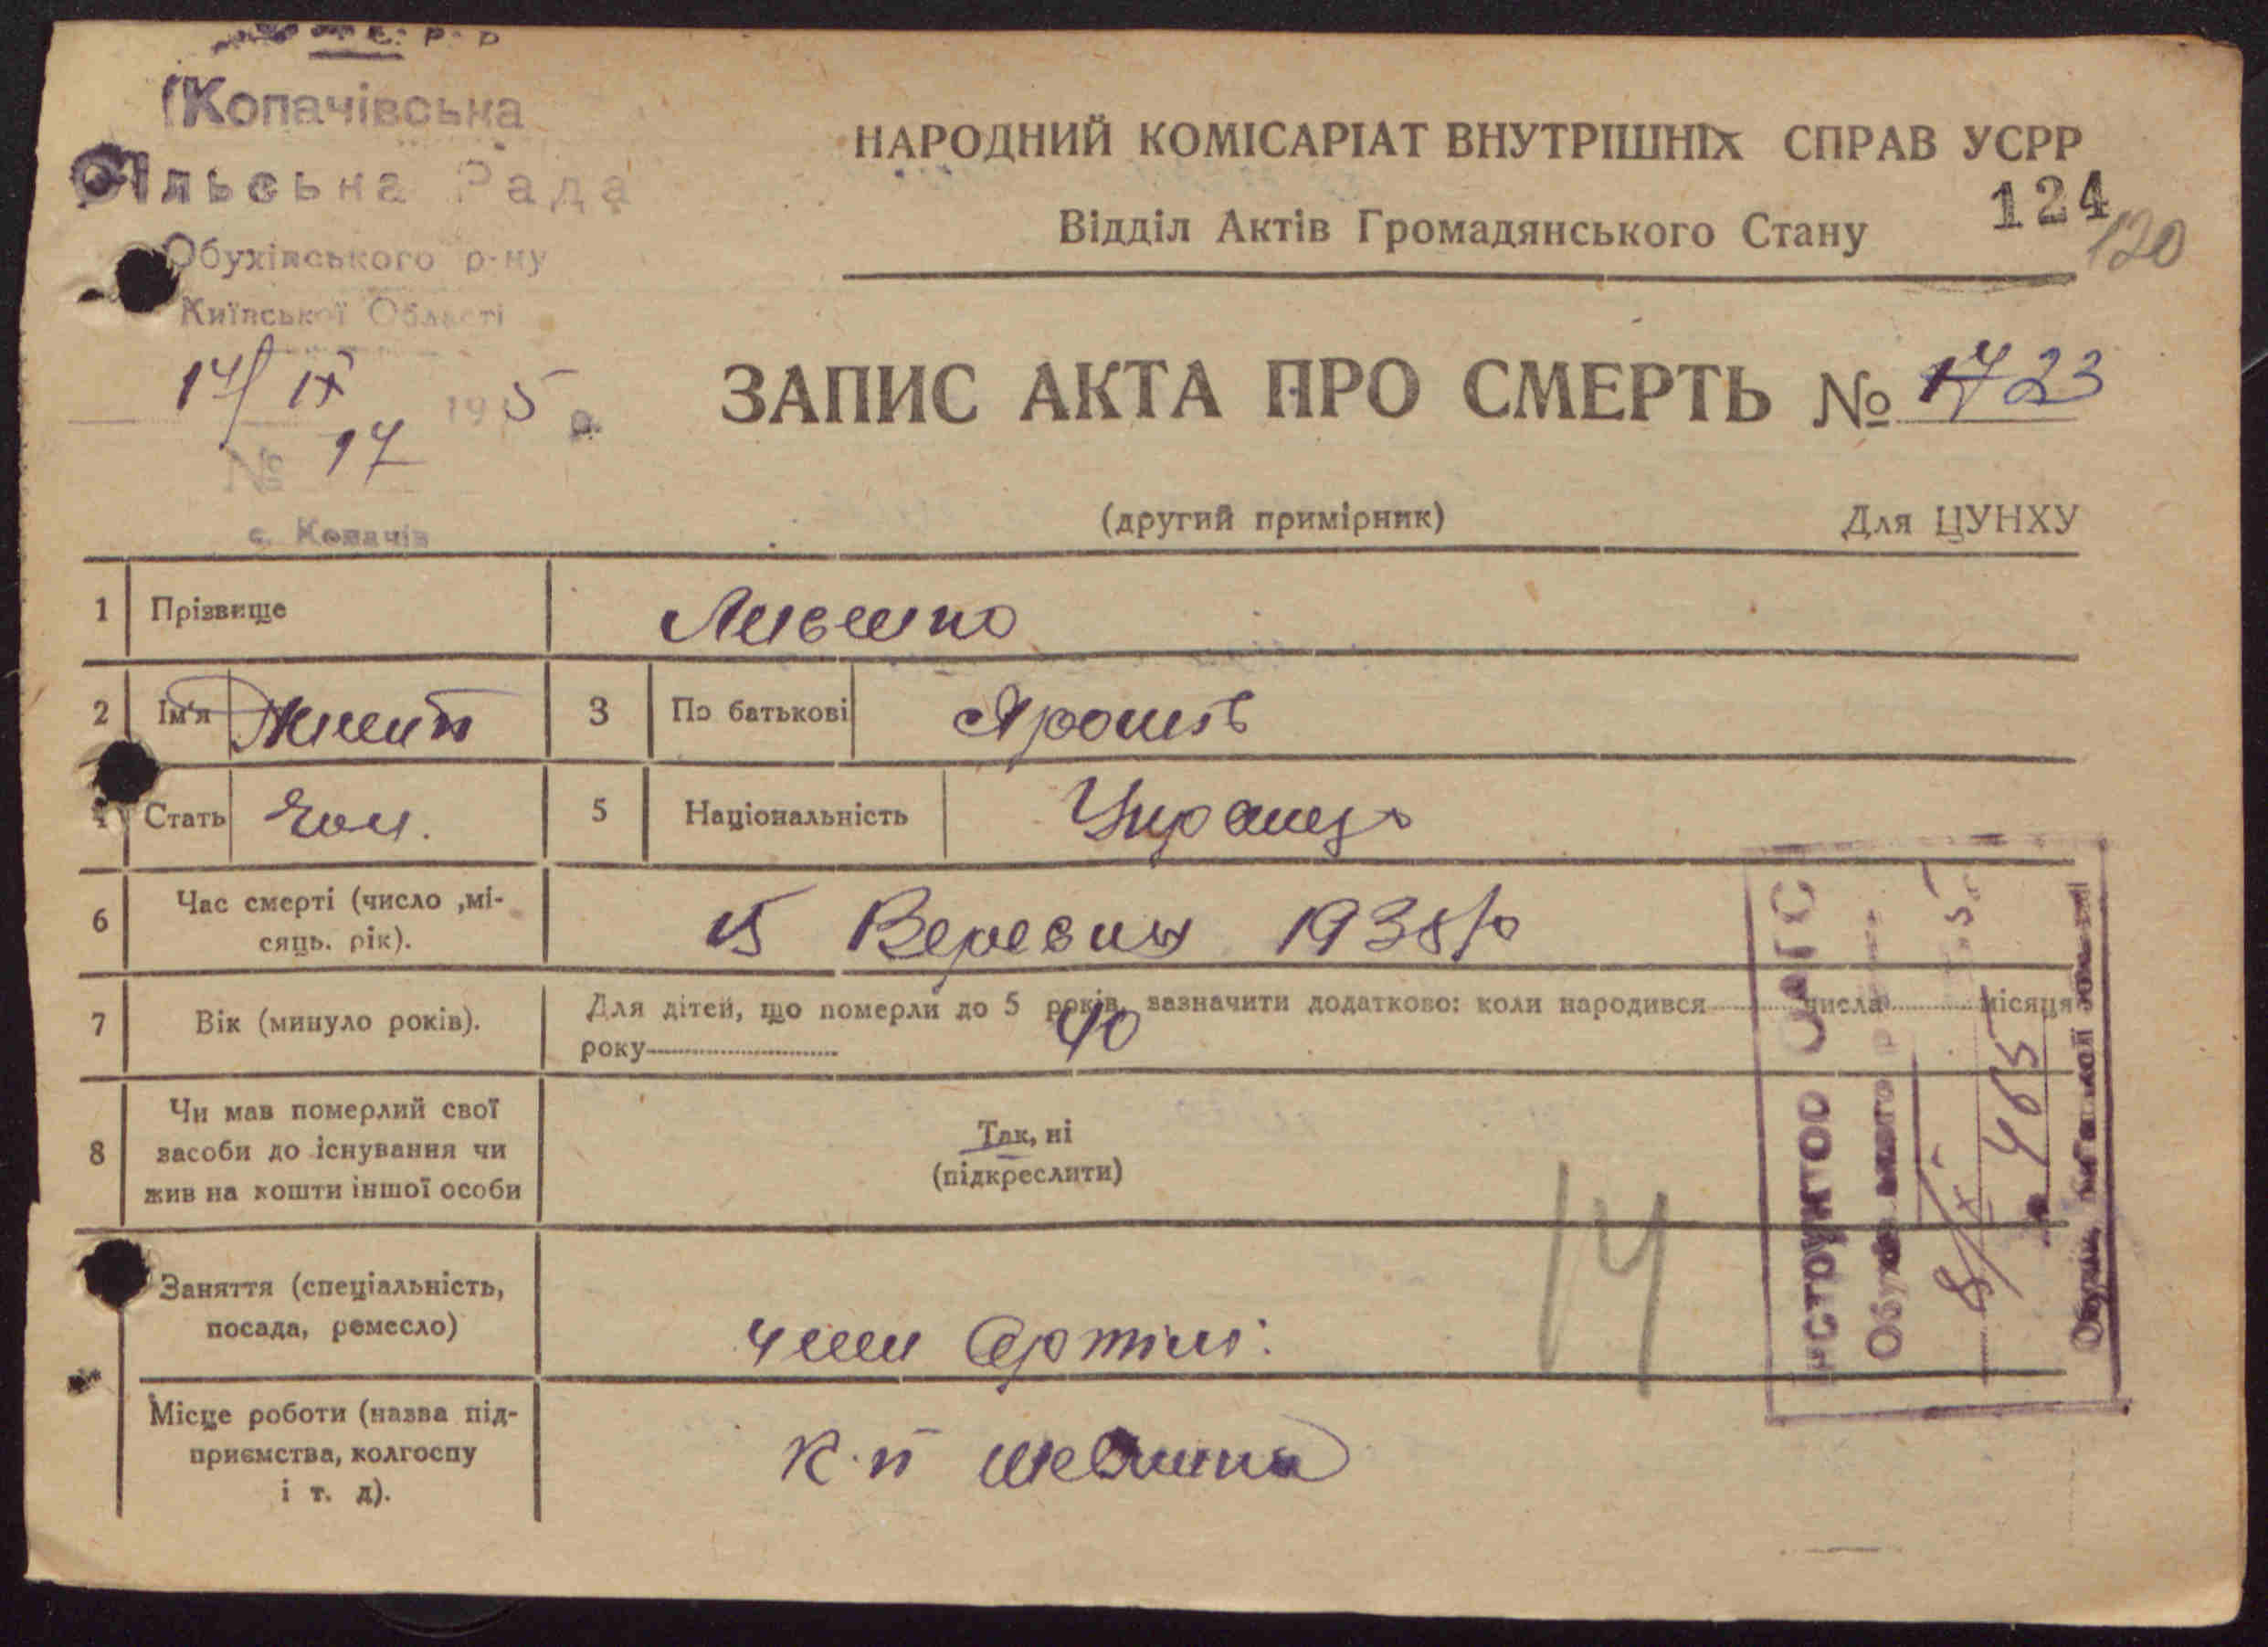 Копачівська
Сільська Рада
Обухівського р-ну
Київської Області
17/IX 1935 р.
№ 17
с. Копачів
НАРОДНИЙ КОМІСАРІАТ ВНУТРІШНІХ СПРАВ УСРР
124
120
Відділ Актів Громадянського Стану
ЗАПИС АКТА ПРО СМЕРТЬ № 17 23
(другий примірник)
Для ЦУНХУ
1 Прізвище
2 Ім'я
3 По батькові
4 Стать Чол.
5 Національність Украінець
6 Час смерті (число ,мі-
сяць. рік).
15 Вересня 1935 р
7 Вік (минуло років).
Для дітей, що померли до 5 років, зазначити додатково: коли народився числа місяця
року
40
8 Чи мав померлий свої
засоби до існування чи
жив на кошти іншої особи
Так, ні
(підкреслити)
Заняття (спеціальність,
посада, ремесло)
член Артілі
14
Місце роботи (назва під-
приємства, колгоспу
і т. д).